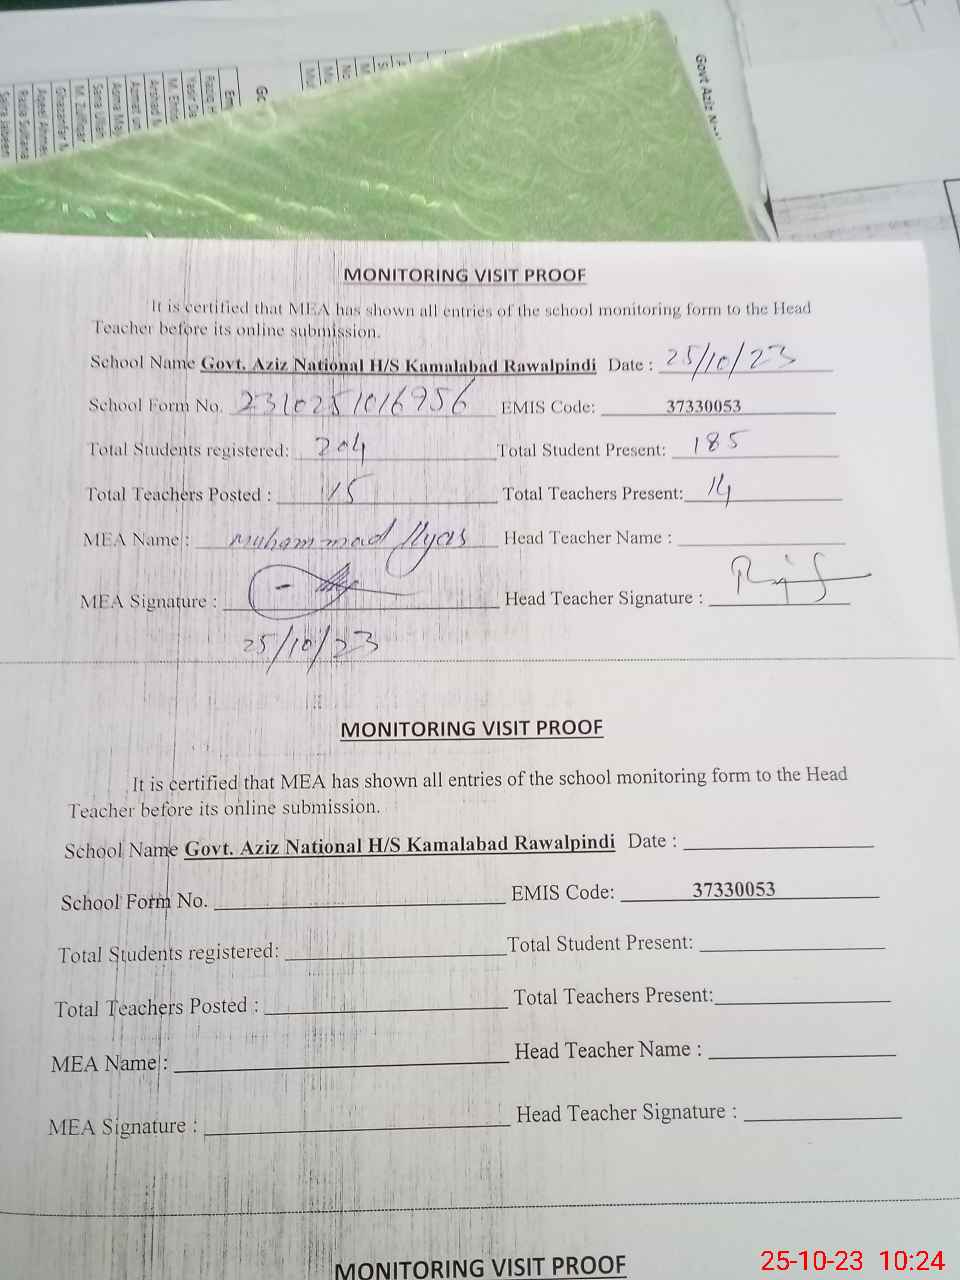 Govt Aziz
MONITORING VISIT PROOF
It is certified that MEA has shown all entries of the school monitoring form to the Head
Teacher before its online submission.
School Name Govt. Aziz National H/S Kamalabad Rawalpindi Date : 25/10/23
School Form No. 2310251016956 EMIS Code: 37330053
Total Students registered: 204 Total Student Present: 185
Total Teachers Posted : 15 Total Teachers Present: 14
MEA Name : Muhammad Ilyas Head Teacher Name :
MEA Signature : Head Teacher Signature :
25/10/23
MONITORING VISIT PROOF
It is certified that MEA has shown all entries of the school monitoring form to the Head
Teacher before its online submission.
School Name Govt. Aziz National H/S Kamalabad Rawalpindi Date :
School Form No. EMIS Code: 37330053
Total Students registered: Total Student Present:
Total Teachers Posted : Total Teachers Present:
MEA Name : Head Teacher Name :
MEA Signature : Head Teacher Signature :
MONITORING VISIT PROOF
25-10-23 10:24